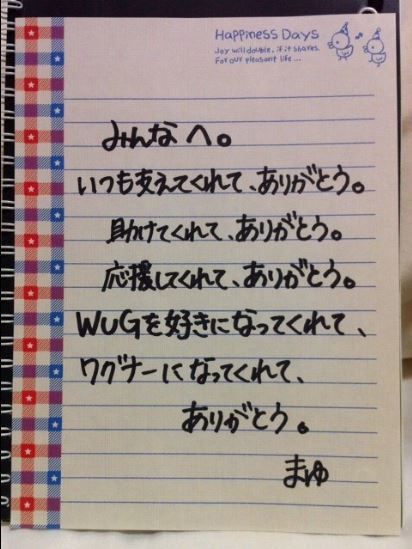 Happiness Days
Joy will double, if it shares.
For our pleasant life...
みんなへ。
いつも支えてくれて、ありがとう。
助けてくれて、ありがとう。
応援してくれて、ありがとう。
WUGを好きになってくれて、
ワグナーになってくれて、
ありがとう。
まゆ